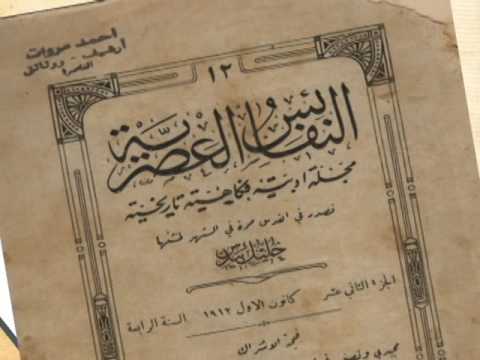 احمد مروات
ارشيف ووثائق
الناصرة
١٢
النفائس العصرية
مجلة ادبية فكاهية تاريخية
تصدر في القدس مرة في الشهر لمنشئها
خليل بيدس
الجزء الثاني عشر كانون الاول ١٩١٢ السنة الرابعة
قيمة الاشتراك
مجيدي ونصف في